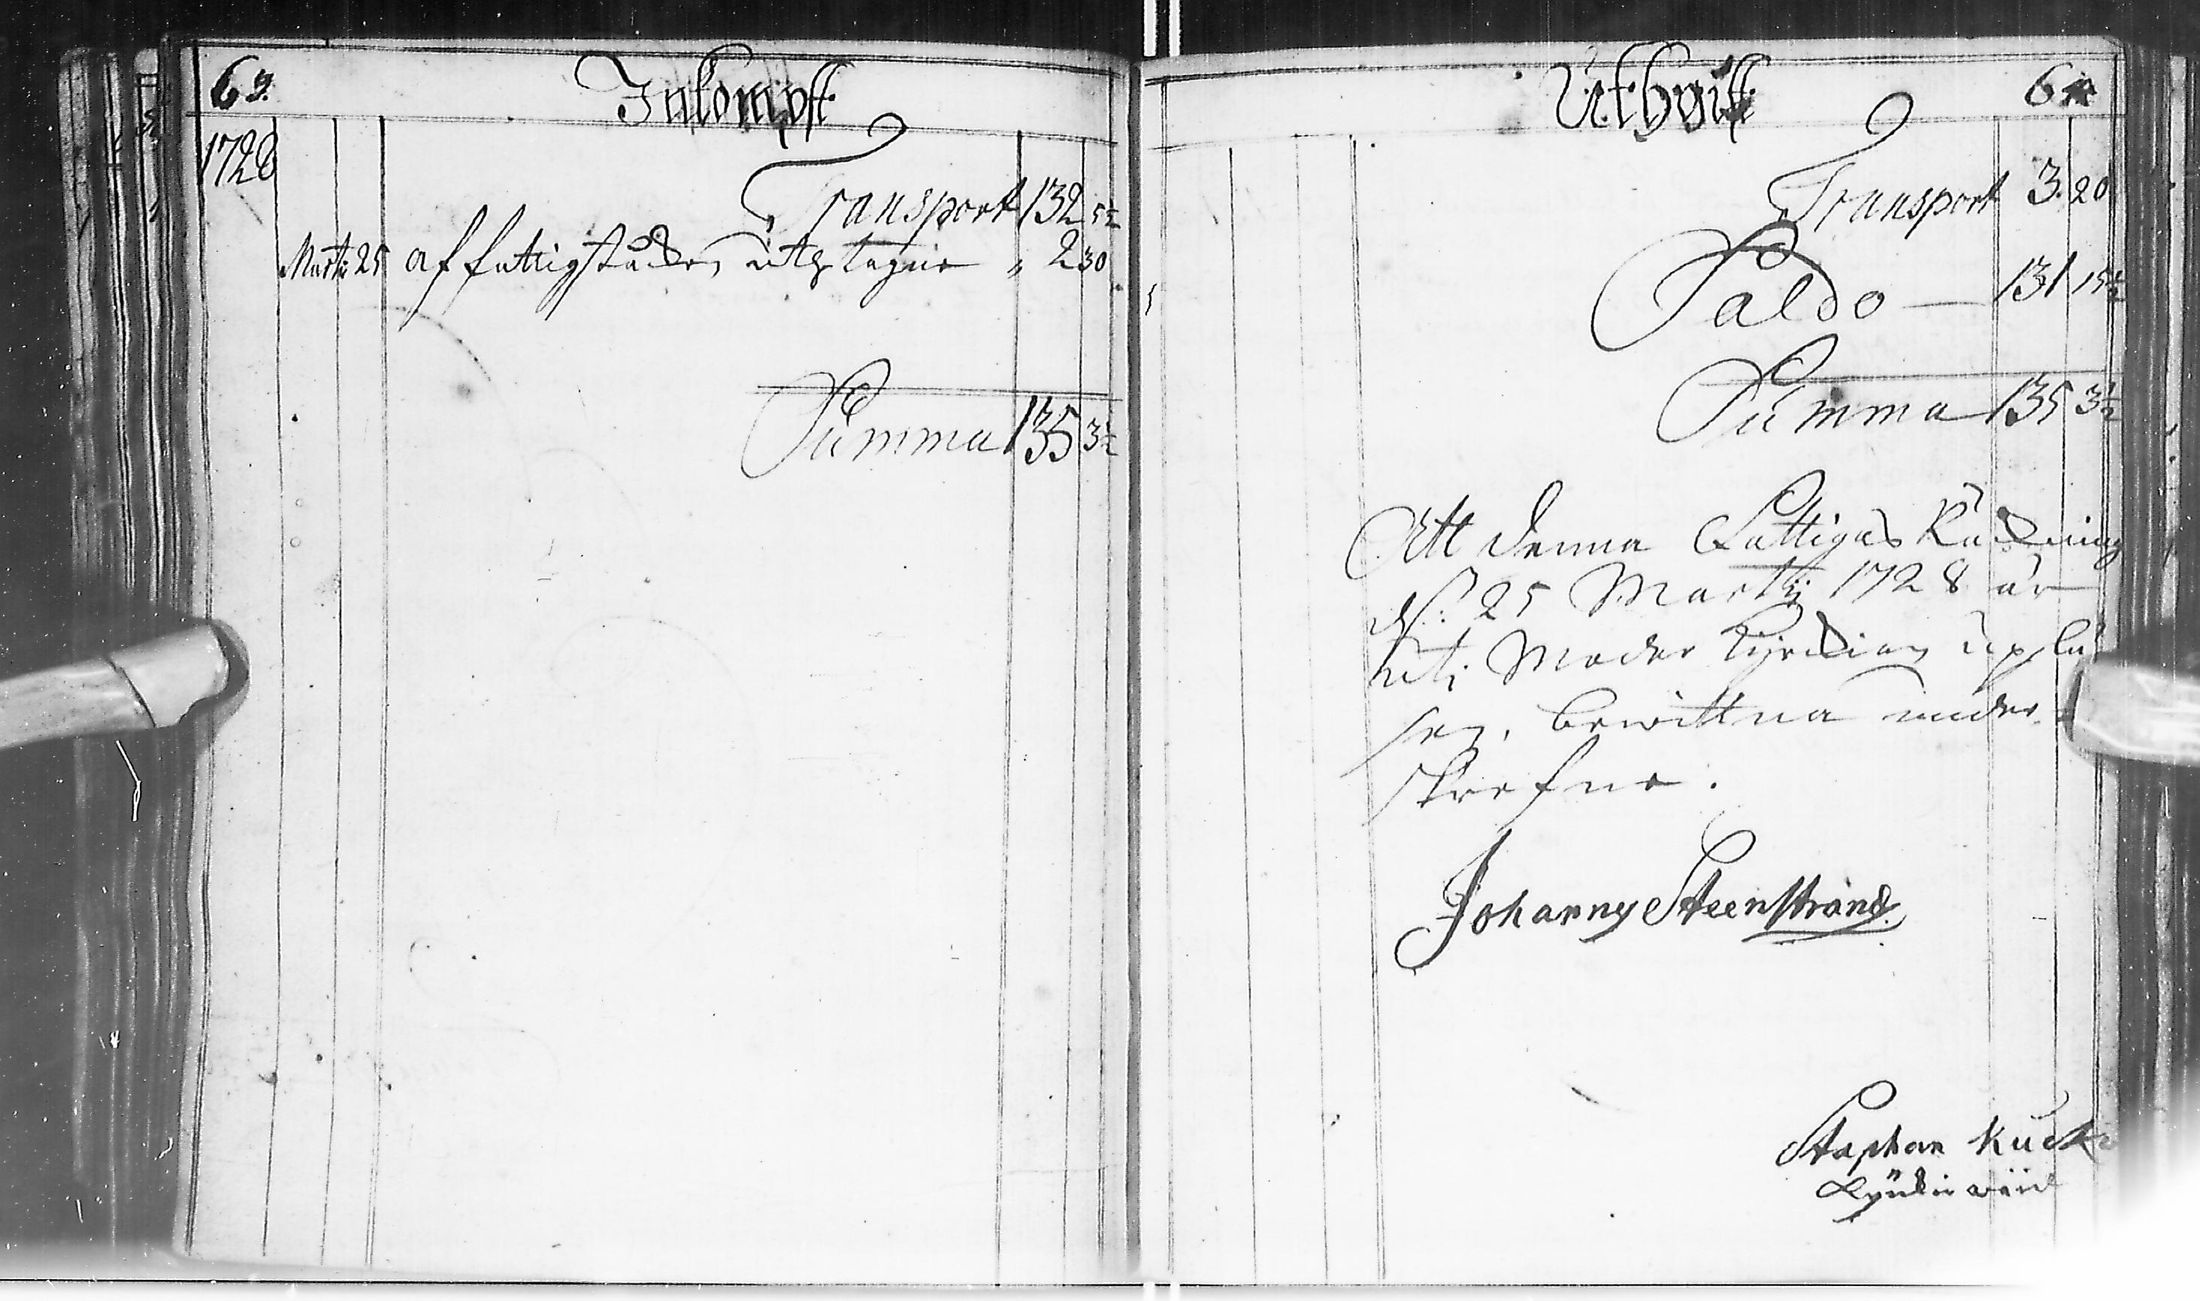 63.
Inkompst
1728
Transport 132 5½
Martij 25 af fattigstocken uthtagne " 2 30
Summa 135 3½
Uthgift
64
Transport 3. 20
Saldo — 131 15½
Summa 135 3½
Att denna Fattigas Räckning
d. 25 Martij 1728 är
uti Moder Kyrckian uplä
sen, bewittna under
skrefne.
Johannes Steenstrand
Staphan Kuck